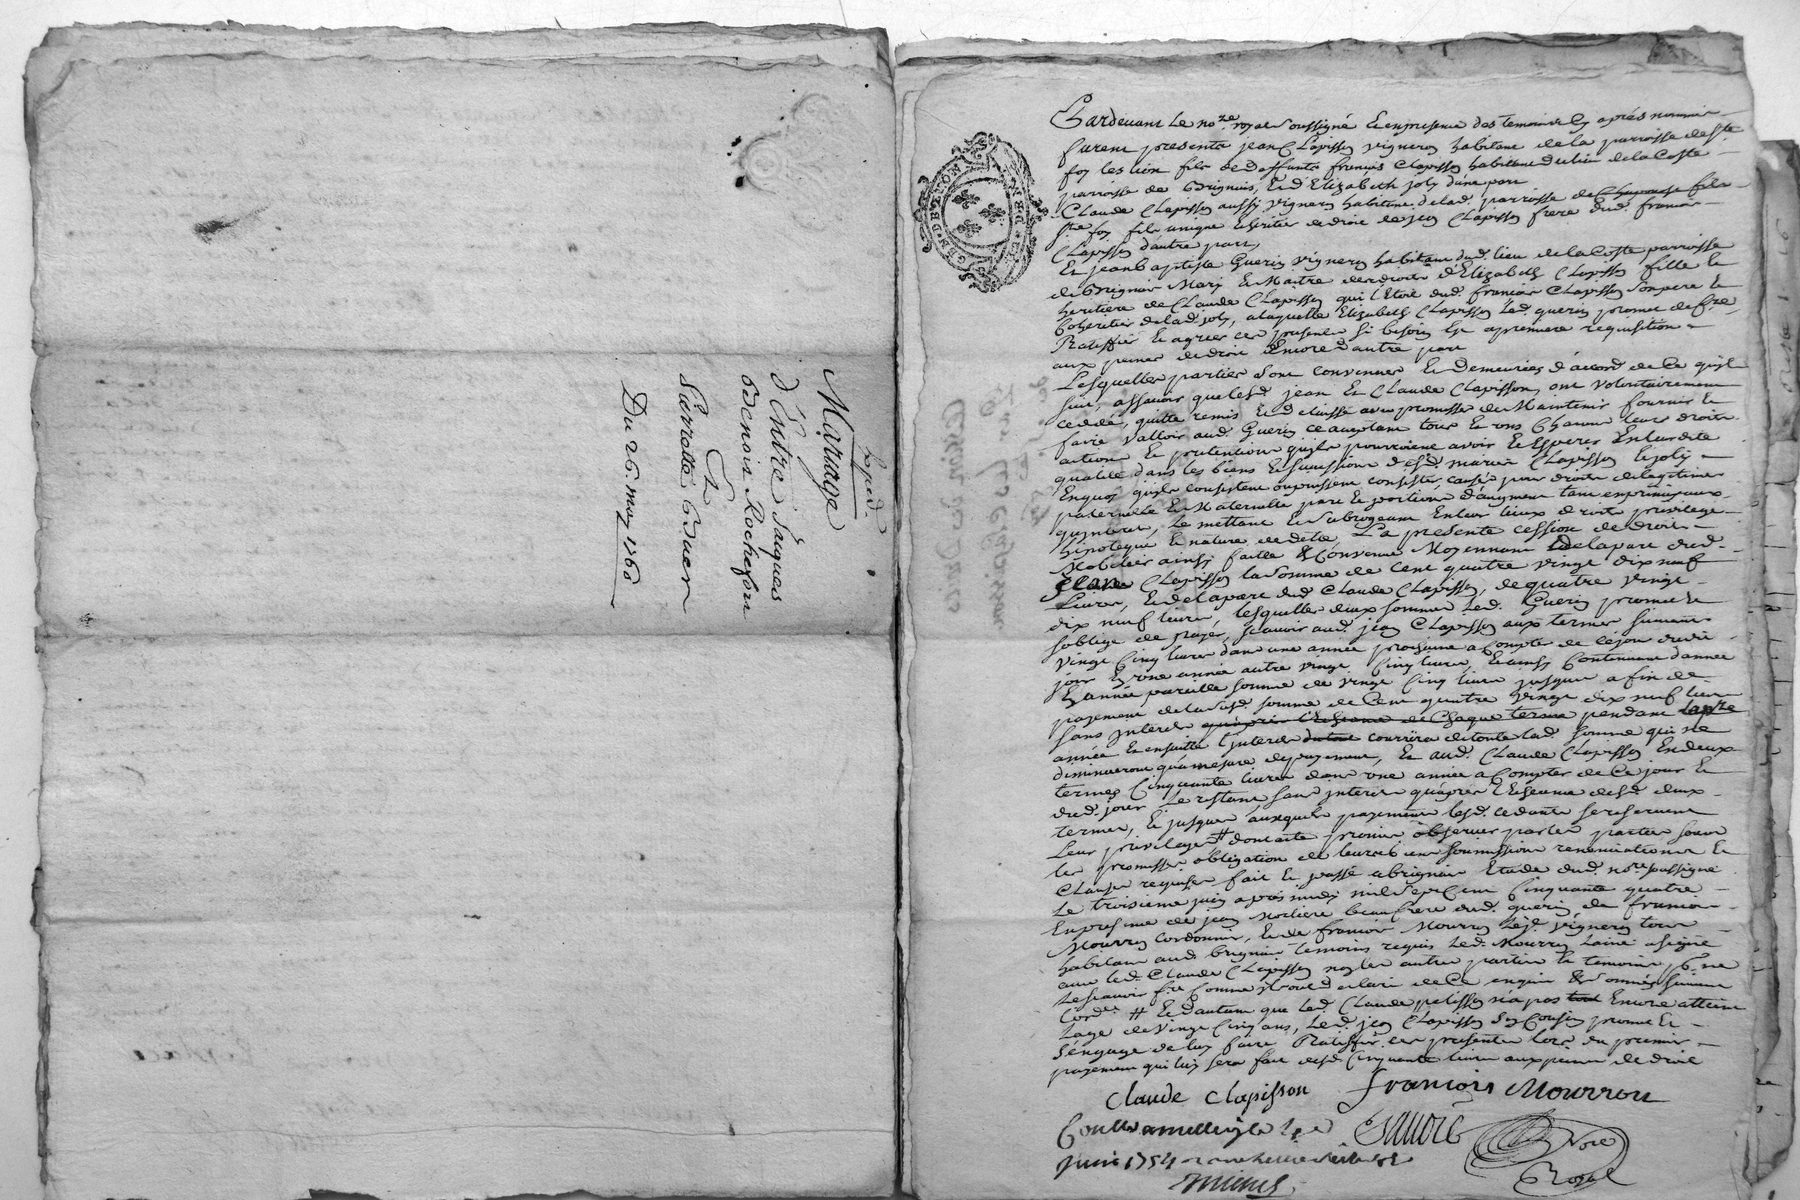 Exped.
Mariage
d'Entre Jacques
Benoit Rochefort
Et
Pierrette Buer
Du 26. may 1760
GEN. DE LYON
Pardevant Le no.re royal soussigné Et en presence des temoins cy après nommés
furent presents jean Clapisson vigneron habitant de la parroisse de Ste
foy les lion fils de deffunts francois Clapisson habitant du lieu de la Coste
parroisse de Brignais, Et d'Elizabeth joly d'une part
Claude Clapisson aussy vigneron habitant de lad. parroisse de
Ste foy fils unique et heritier de droit de jean Clapisson frere dud. francois
Clapisson d'autre part,
Et jean baptiste Guerin vigneron habitant dud. lieu de la Coste parroisse
de Brignais Mary Et Maitre des droits d'Elizabeth Clapisson fille Et
heritiere de Claude Clapisson qui l'Etoit dud. francois Clapisson son pere Et
Coheritier de lad. joly, a laquelle Elizabeth Clapisson led. guerin promet de fre
Ratiffier Et agreer ces presentes si besoin Est a premiere requisition
aux peines de droit Encore d'autre part
Lesquelles parties sont convenues Et demeurées d'accord de Ce qu'il
suit, assavoir que lesd. jean Et Claude Clapisson, ont volontairement
cedé, quitté remis Et delaissé avec promesse de Maintenir fournir Et
faire valloir aud. Guerin ce acceptant tous Et uns Chacuns leurs droits
actions Et pretentions qu'ils pourroient avoir Et Esperer En leur dite
qualité dans les biens Et succession desd. mariés Clapisson Et joly
En quoy qu'ils consistent ou puissent consister, causés pour droits de legitimes
paternelle Et Maternelle part Et portions d'augment tant en principaux
qu'interets, Le mettant Et subrogeant En leur lieux droits privilege
hipoteque Et nature de dette, La presente cession de droits
Mobiliers ainsy faitte & convenue Moyennant de la part dud.
jean Clapisson la somme de Cent quatre vingt dix neuf
Livres, Et de la part dud. Claude Clapisson, de quatre vingt
dix neuf livres, lesquelles deux sommes led. Guerin promet Et
s'oblige de payer, scavoir aud. jean Clapisson aux termes suivants
vingt Cinq livres dans une année prochaine a compter de Cejourd'huy
jour Et une année autre vingt Cinq livres, Et ainsy Continuant d'année
En année pareille somme de vingt Cinq livres jusques a fin de
payement de lad. somme de Cent quatre vingt dix neuf livres
sans interets qu'après l'Echeance de Chaque terme pendant
année Et ensuitte l'interets courrira de toute lad. somme qui ne
diminueront qu'a mesure de payement, Et aud. Claude Clapisson En deux
termes Cinquante livres dans une année a Compter de Ce jour Et
dud. jour Le restant, sans interets qu'après l'Echeance desd. deux
termes, Et jusques auxquels payements lesd. cedants se reservent
Leur privilege # dont acte promis observer par les parties sous
les promesses obligation de leurs biens soumissions renonciations Et
Clauses requises fait Et passé a brignais Etude dud. no.re soussigné
Le troisieme juin après midy mil sept Cent Cinquante quatre
En presence de jean beau frere dud. guerin, de francois
Mourron Cordonnier, Et de francois Mourron Le j.e vigneron tous
habitans aud. brignais temoins requis Led. Mourron L'ainé a signé
avec led. Claude Clapisson non les autres parties Et temoins p.r ne
Le scavoir fre Comme
# Et d'autant que led. Claude Clapisson n'a pas Encore atteint
L'age de Vingt Cinq ans, Led. jean Clapisson son Cousin promet Et
s'engage de luy faire Ratiffier ces presentes lors du premier
payement qui luy sera fait desd. Cinquante livres aux peines de droit
Claude Clapisson francois Mourron
Controllé
juin 1754
Nore
Royal